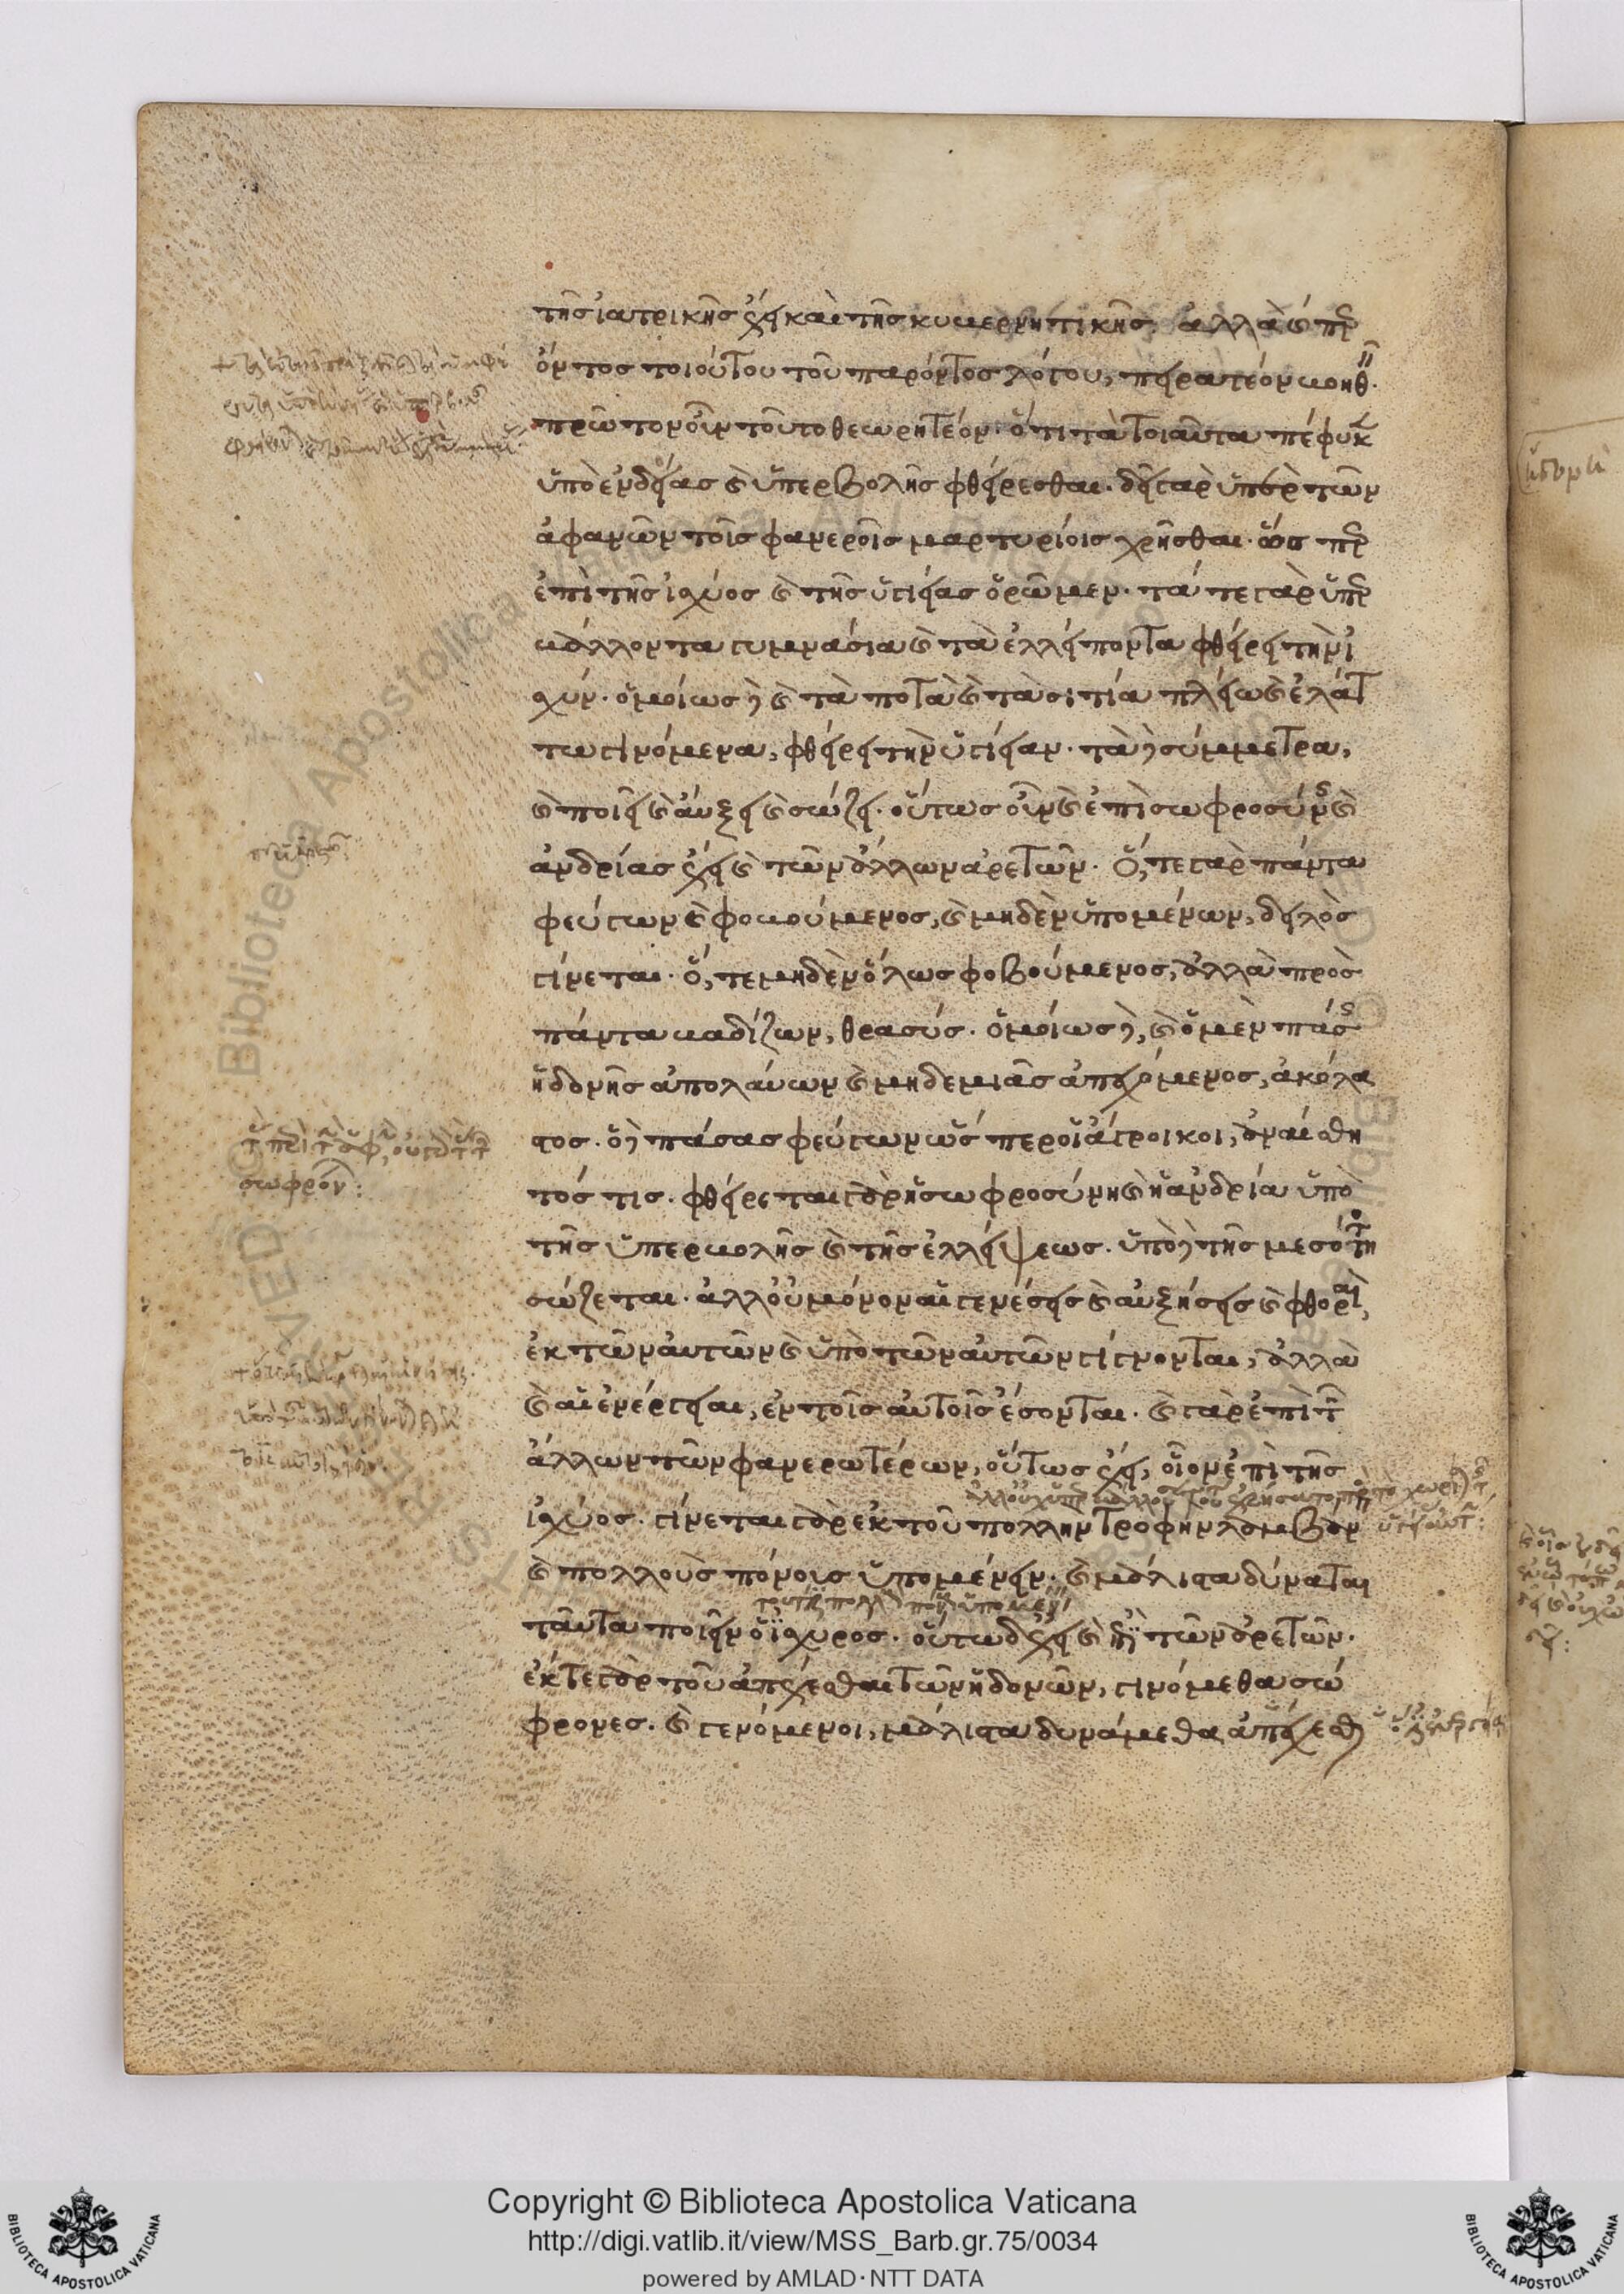 τῆς ἰατρικῆς ἔχει καὶ τῆς κυβερνητικῆς· ἀλλὰ καὶ περ
ὄντος τοιούτου τοῦ παρόντος λόγου, πειρατέον βοηθ.
πρῶτον οὖν τοῦτο θεωρητέον· ὅτι τὰ τοιαῦτα πέφυκ
ὑπὸ ἐνδείας καὶ ὑπερβολῆς φθείρεσθαι· δεῖ γὰρ ὑπὲρ τῶν
ἀφανῶν τοῖς φανεροῖς μαρτυρίοις χρῆσθαι· ὥσπερ
ἐπὶ τῆς ἰσχύος καὶ τῆς ὑγιείας ὁρῶμεν· τά τε γὰρ ὑπερ
βάλλοντα γυμνάσια καὶ τὰ ἐλλείποντα φθείρει τὴν ἰ
σχύν· ὁμοίως δὲ καὶ τὰ ποτὰ καὶ τὰ σιτία πλείω καὶ ἐλάτ
τω γινόμενα, φθείρει τὴν ὑγίειαν· τὰ δὲ σύμμετρα,
καὶ ποιεῖ καὶ αὔξει καὶ σώζει· οὕτως οὖν καὶ ἐπὶ σωφροσύνης καὶ
ἀνδρίας ἔχει καὶ τῶν ἄλλων ἀρετῶν· ὅ, τε γὰρ πάντα
φεύγων καὶ φοβούμενος, καὶ μηδὲν ὑπομένων, δειλὸς
γίνεται· ὅ, τε μηδὲν ὅλως φοβούμενος, ἀλλὰ πρὸς
πάντα βαδίζων, θρασύς· ὁμοίως δὲ, καὶ ὁ μὲν πάσης
ἡδονῆς ἀπολαύων καὶ μηδεμιᾶς ἀπεχόμενος, ἀκόλα
στος· ὁ δὲ πάσας φεύγων ὥσπερ οἱ ἄγροικοι, ἀναίσθη
τός τις· φθείρεται γὰρ ἡ σωφροσύνη καὶ ἡ ἀνδρία ὑπὸ
τῆς ὑπερβολῆς καὶ τῆς ἐλλείψεως· ὑπὸ δὲ τῆς μεσότητος
σώζεται· ἀλλ' οὐ μόνον αἱ γενέσεις καὶ αὐξήσεις καὶ φθοραὶ,
ἐκ τῶν αὐτῶν καὶ ὑπὸ τῶν αὐτῶν γίγνονται, ἀλλὰ
καὶ αἱ ἐνέργειαι, ἐν τοῖς αὐτοῖς ἔσονται· καὶ γὰρ ἐπὶ τῶν
ἄλλων τῶν φανερωτέρων, οὕτως ἔχει, οἷον ἐπὶ τῆς
ἰσχύος· γίνεται γὰρ ἐκ τοῦ πολλὴν τροφὴν λαμβάνειν
καὶ πολλοὺς πόνοις ὑπομένειν· καὶ μάλιστα δύναται
ταῦτα ποιεῖν ὁ ἰσχυρος· οὕτω δ' ἔχει καὶ ἐπὶ τῶν ἀρετῶν·
ἔκ τε γὰρ τοῦ ἀπέχεσθαι τῶν ἡδονῶν, γινόμεθα σώ
φρονες· καὶ γενόμενοι, μάλιστα δυνάμεθα ἀπέχεσθαι
Copyright © Biblioteca Apostolica Vaticana
http://digi.vatlib.it/view/MSS_Barb.gr.75/0034
powered by AMLAD·NTT DATA
BIBLIOTECA APOSTOLICA VATICANA
BIBLIOTECA APOSTOLICA VATICANA